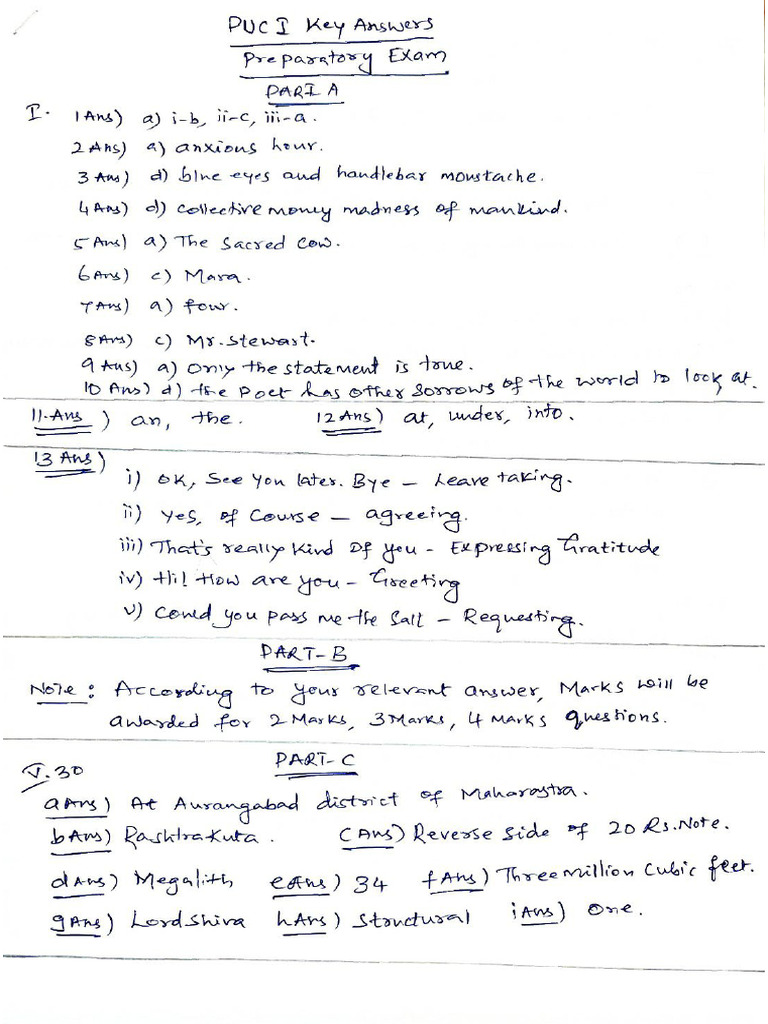 PUC I Key Answers
Preparatory Exam
PART A
I. 1 Ans) a) i-b, ii-c, iii-a.
2 Ans) a) anxious hour.
3 Ans) d) blue eyes and handlebar moustache.
4 Ans) d) collective money madness of mankind.
5 Ans) a) The Sacred Cow.
6 Ans) c) Mara.
7 Ans) a) four.
8 Ans) c) Mr. Stewart.
9 Ans) a) Only the statement is true.
10 Ans) d) the Poet has other sorrows of the world to look at.
11. Ans ) an, the. 12 Ans) at, under, into.
13 Ans)
i) OK, See you later. Bye – Leave taking.
ii) Yes, of Course – agreeing.
iii) That's really kind of you - Expressing Gratitude
iv) Hi! How are you – Greeting
v) Could you pass me the Salt – Requesting.
PART-B
Note: According to your relevant answer, Marks will be
awarded for 2 Marks, 3 Marks, 4 Marks questions.
PART-C
V. 30
a Ans) At Aurangabad district of Maharastra.
b Ans) Rashtrakuta. C Ans) Reverse side of 20 Rs. Note.
d Ans) Megalith e Ans) 34 f Ans) Three million Cubic feet.
g Ans) Lord Shiva h Ans) Structural i Ans) One.